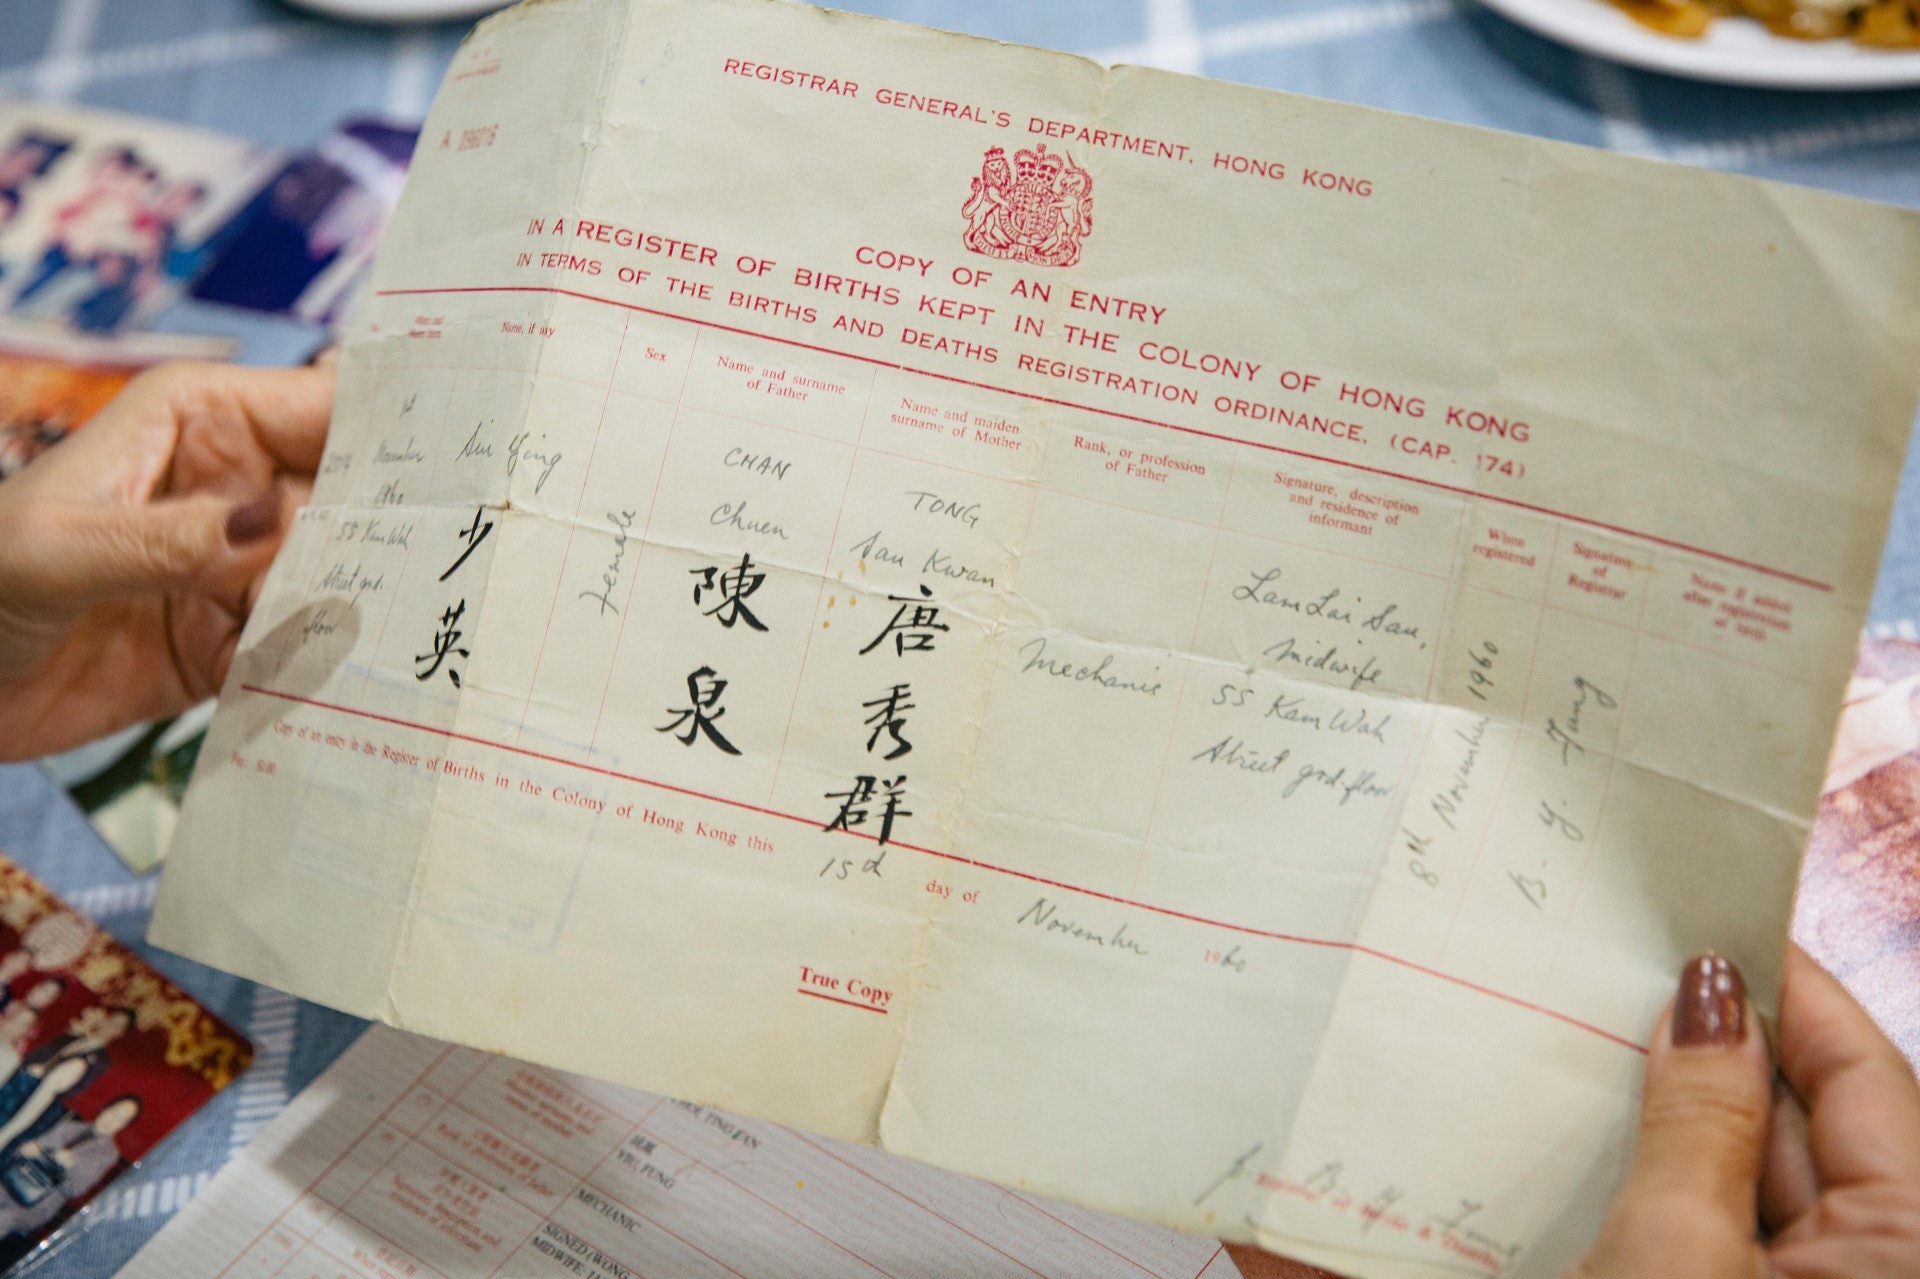 REGISTRAR GENERAL'S DEPARTMENT, HONG KONG
COPY OF AN ENTRY
IN A REGISTER OF BIRTHS KEPT IN THE COLONY OF HONG KONG
IN TERMS OF THE BIRTHS AND DEATHS REGISTRATION ORDINANCE. (CAP. 174)
Name, if any
Sex
Name and surname
of Father
Name and maiden
surname of Mother
Rank, or profession
of Father
Signature, description
and residence of
informant
When
registered
Signature
of
Registrar
Name if added
after registration
of birth
1st
November
1960
55 Kam Wah
Street grd.
floor
Siu Ying
少英
Female
CHAN
Chuen
陳泉
TONG
Sau Kwan
唐秀群
Mechanic
Lam Lai Sau,
midwife
55 Kam Wah
Street grd. floor
8th November 1960
B. Y. Tung
Copy of an entry in the Register of Births in the Colony of Hong Kong this
15th day of November 1960
True Copy
YIU FUNG
MECHANIC
SIGNED (WONG